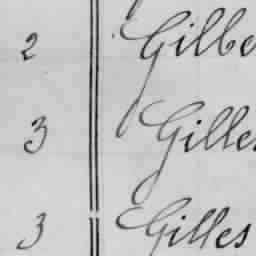 2 Gilbe
3 Gilles
3 Gilles